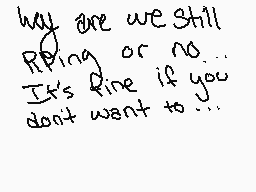 hay are we still
RPing or no...
It's fine if you
don't want to...